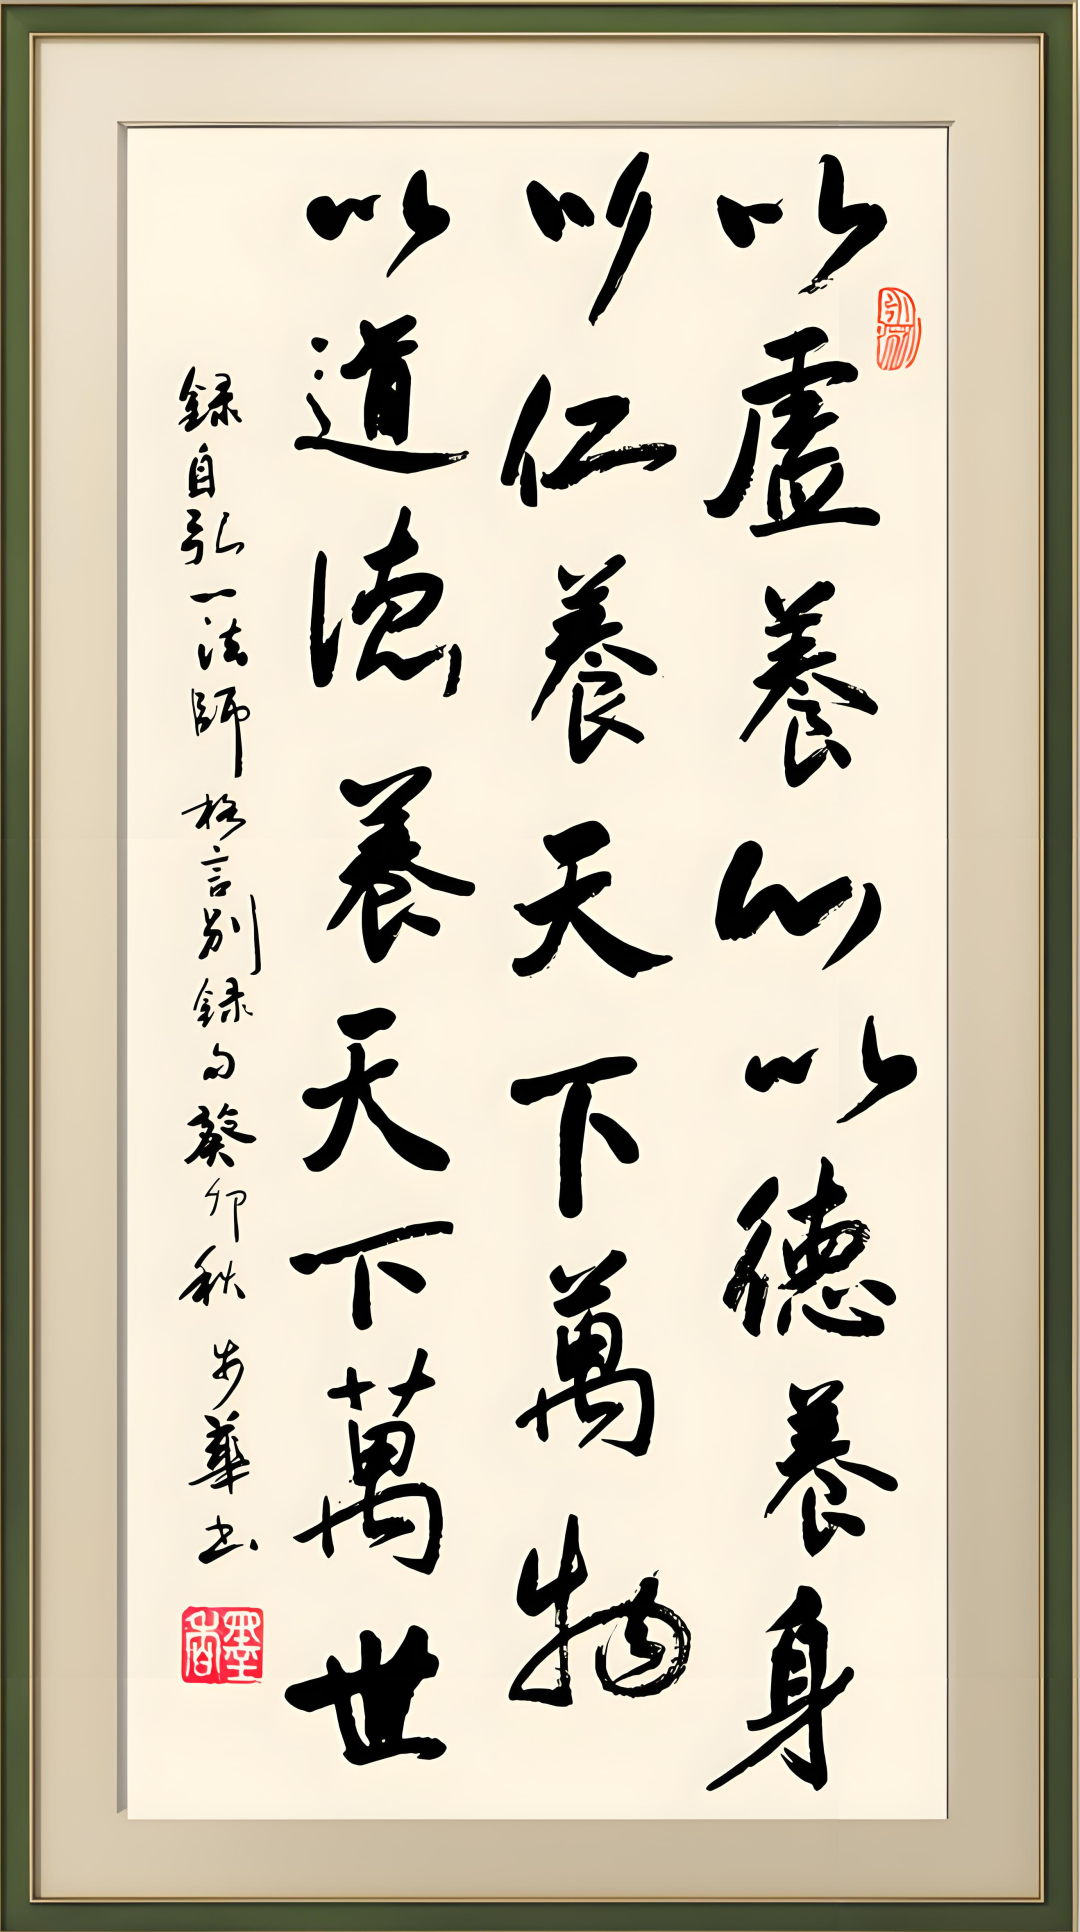 以虛養心以德養身
以仁養天下萬物
以道德養天下萬世
録自弘一法師格言别録句癸卯秋 步華書
墨香